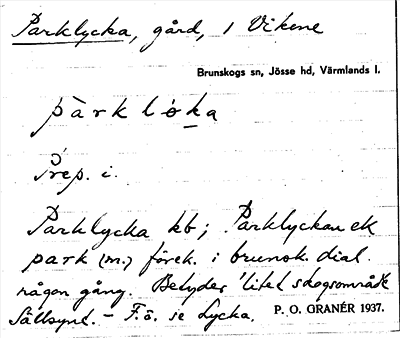 Parklycka, gård, 1 Vikene
Brunskogs sn, Jösse hd, Värmlands l.
pàrkløka
Prep. i.
Parklycka kb; Parklyckan ek
park (m.) förek. i brunsk. dial.
någon gång. Betyder 'litet skogsområde'
Sällsynt. – F.ö. se Lycka. P. O. GRANÉR 1937.